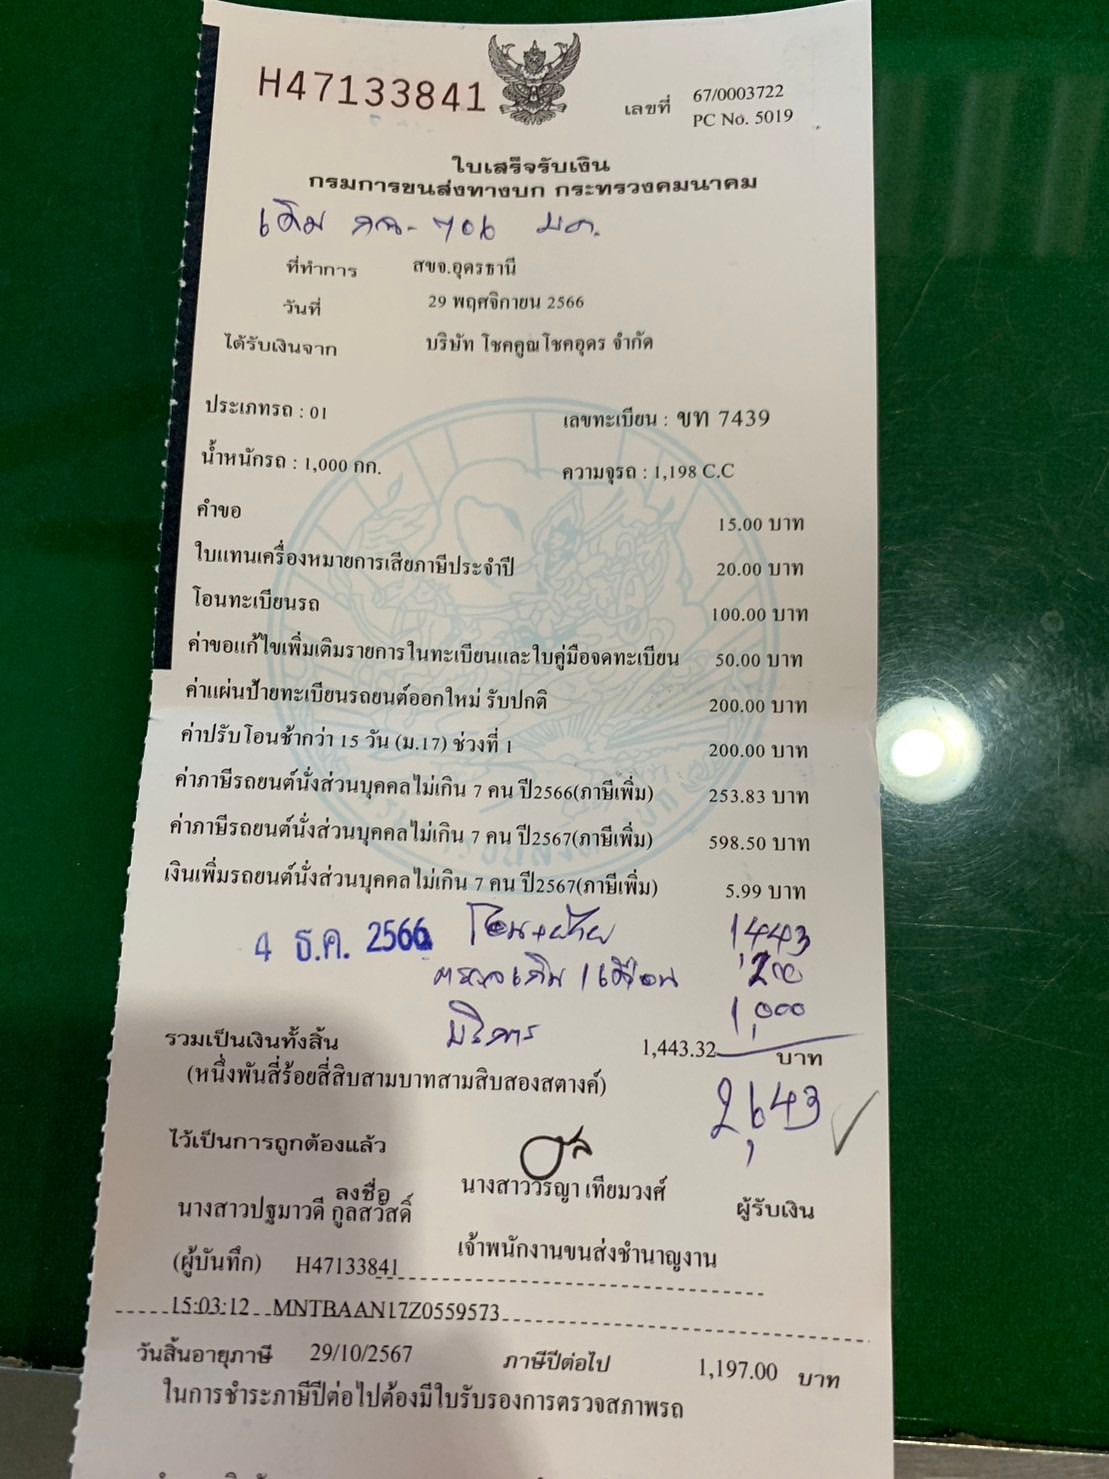 H47133841
เลขที่ 67/0003722
PC No. 5019
ใบเสร็จรับเงิน
กรมการขนส่งทางบก กระทรวงคมนาคม
เดิม
ที่ทำการ สขจ.อุดรธานี
วันที่ 29 พฤศจิกายน 2566
ได้รับเงินจาก บริษัท โชคคูณโชคอุดร จำกัด
ประเภทรถ : 01 เลขทะเบียน : ขท 7439
น้ำหนักรถ : 1,000 กก. ความจุรถ : 1,198 C.C
คำขอ 15.00 บาท
ใบแทนเครื่องหมายการเสียภาษีประจำปี 20.00 บาท
โอนทะเบียนรถ 100.00 บาท
ค่าขอแก้ไขเพิ่มเติมรายการในทะเบียนและใบคู่มือจดทะเบียน 50.00 บาท
ค่าแผ่นป้ายทะเบียนรถยนต์ออกใหม่ รับปกติ 200.00 บาท
ค่าปรับโอนช้ากว่า 15 วัน (ม.17) ช่วงที่ 1 200.00 บาท
ค่าภาษีรถยนต์นั่งส่วนบุคคลไม่เกิน 7 คน ปี2566(ภาษีเพิ่ม) 253.83 บาท
ค่าภาษีรถยนต์นั่งส่วนบุคคลไม่เกิน 7 คน ปี2567(ภาษีเพิ่ม) 598.50 บาท
เงินเพิ่มรถยนต์นั่งส่วนบุคคลไม่เกิน 7 คน ปี2567(ภาษีเพิ่ม) 5.99 บาท
4 ธ.ค. 2566 โอน+ย้าย 1,443
200
บริการ 1,000
รวมเป็นเงินทั้งสิ้น 1,443.32 บาท
(หนึ่งพันสี่ร้อยสี่สิบสามบาทสามสิบสองสตางค์)
2,643
ไว้เป็นการถูกต้องแล้ว
ลงชื่อ นางสาววรญา เทียมวงศ์ ผู้รับเงิน
นางสาวปฐมาวดี กูลสวัสดิ์
เจ้าพนักงานขนส่งชำนาญงาน
(ผู้บันทึก) H47133841
15:03:12 MNTBAAN17Z0559573
วันสิ้นอายุภาษี 29/10/2567 ภาษีปีต่อไป 1,197.00 บาท
ในการชำระภาษีปีต่อไปต้องมีใบรับรองการตรวจสภาพรถ